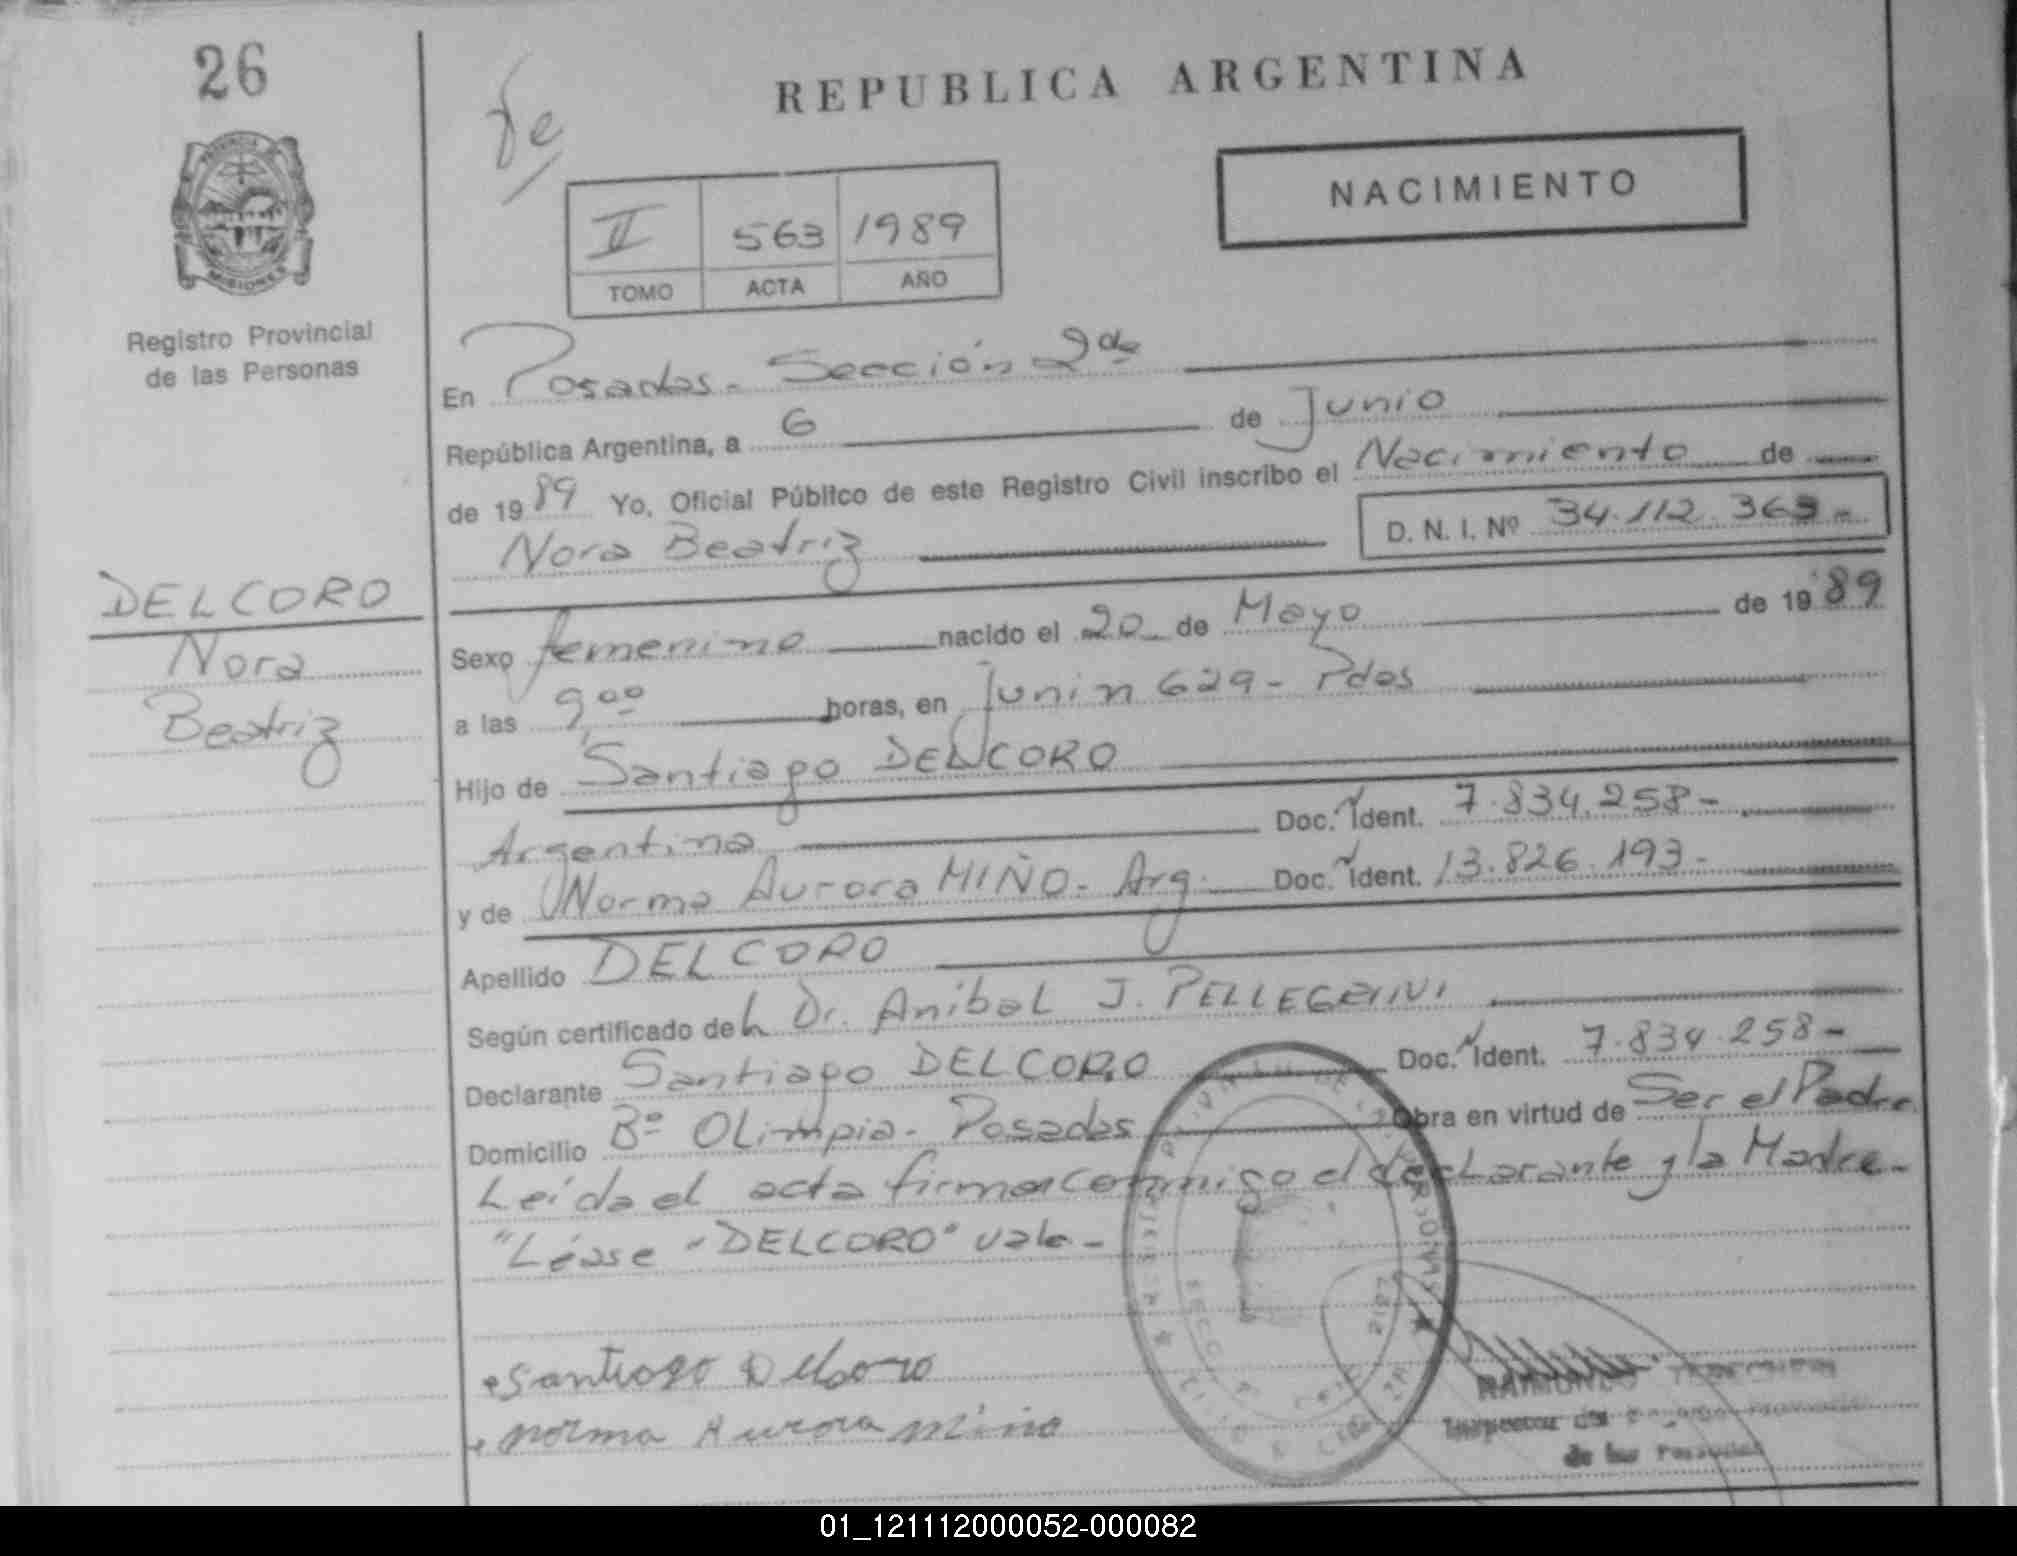 26
REPUBLICA ARGENTINA
NACIMIENTO
II 563 1989
TOMO ACTA AÑO
MISIONES
Registro Provincial
de las Personas
En Posadas - Sección 2da
República Argentina, a 6 de Junio
de 1989 Yo, Oficial Público de este Registro Civil inscribo el Nacimiento de
Nora Beatriz D. N. I. Nº 34.112.363 -
DELCORO
Nora
Beatriz
Sexo femenino nacido el 20 de Mayo de 1989
a las 9,00 horas, en Junin 629 - Pdas
Hijo de Santiago DELCORO
Argentino Doc. Ident. 7.834.258 -
y de Norma Aurora MIÑO - Arg. Doc. Ident. 13.826.193 -
Apellido DELCORO
Según certificado del Dr. Anibal J. PELLEGRINI
Declarante Santiago DELCORO Doc. Ident. 7.834.258 -
Domicilio Bº Olimpia - Posadas Obra en virtud de Ser el Padre
Leída el acta firma conmigo el declarante y la Madre -
"Léase "DELCORO" vale -
Santiago Delcoro
norma Aurora miño
Inspector del
de las Personas
01_121112000052-000082